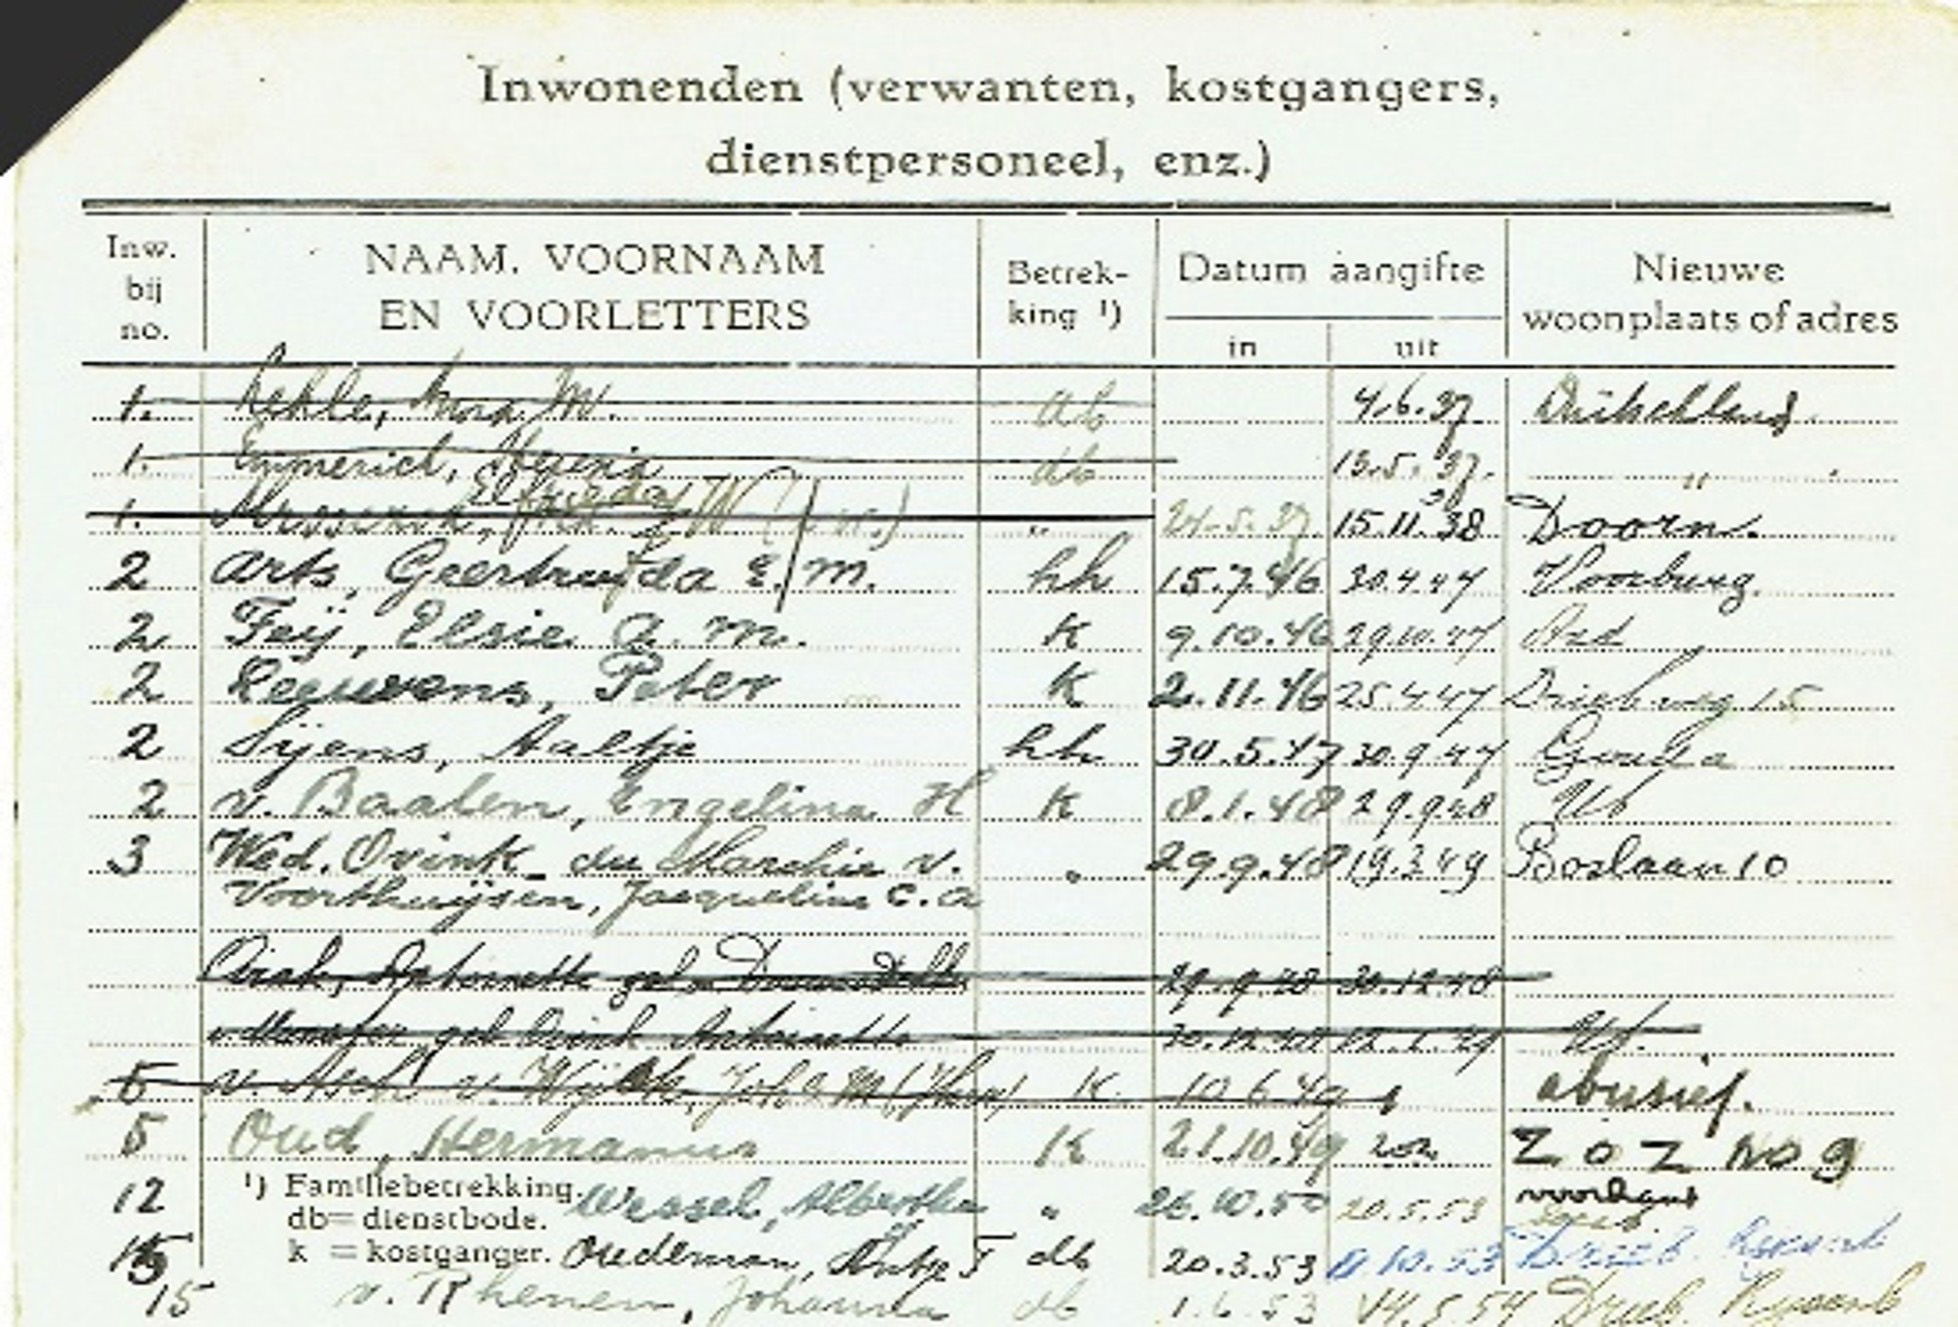 Inwonenden (verwanten, kostgangers,
dienstpersoneel, enz.)
Inw. bij no. NAAM, VOORNAAM EN VOORLETTERS Betrek-king ¹) Datum aangifte in uit Nieuwe woonplaats of adres
1. M. 4.6.37
1. Emmerich, db 13.5.37. "
1. Elfrieda W " 24.5.37 15.11.38 Doorn.
2 Arts, Geertruida E. M. hh 15.7.46 30.4.47 Voorburg.
2 Feij, Elsie A. M. K 9.10.46 29.10.47
2 Leeuwens, Peter K 2.11.46 25.4.47 Driebweg 15
2 Sijens, Aaltje hh 30.5.47 30.9.47 Gouda
2 v. Baalen, Engelina H K 8.1.48 29.9.48 Ut
3 Wed. Ovink du Marchie v. " 29.9.48 19.3.49 Boslaan 10
Voorthuijsen, Jacqueline C. A
Antoinette geb. 29.9.48 30.12.48
geb Antoinette Ut.
v. Asch v. Wijck, K. 10.6.49 abusief.
5 Oud, Hermanus K 21.10.49 zoz Z O Z No 9
12 ¹) Familiebetrekking. Wessel, Albertha " 26.10.50 20.5.53
db = dienstbode.
15 k = kostganger. Oudeman, db 20.3.53 10.53 Drieb.
15 v. Rhenen, Johanna db 1.6.53 14.5.54 Drieb.